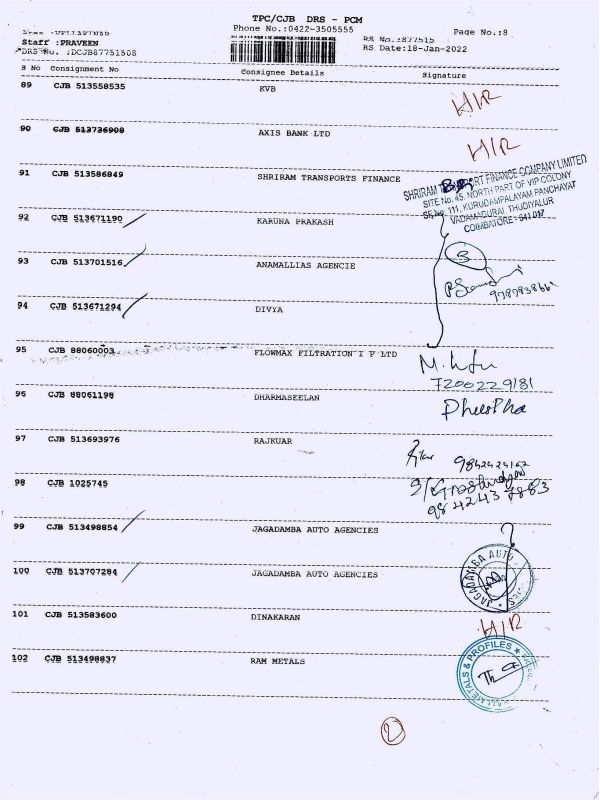 TPC/CJB DRS - PCM
Phone No.:0422-3505555 Page No.:8
RS No.:877515
Staff :PRAVEEN RS Date:18-Jan-2022
DRS No. :DCJB87751508
S No Consignment No Consignee Details Signature
89 CJB 513558535 KVB H/R
90 CJB 513736908 AXIS BANK LTD H/R
91 CJB 513586849 SHRIRAM TRANSPORTS FINANCE
SHRIRAM TRANSPORT FINANCE COMPANY LIMITED
SITE No. 45, NORTH PART OF VIP COLONY
SF.No. 111, KURUDAMPALAYAM PANCHAYAT
VADAMADURAI, THUDIYALUR
COIMBATORE - 641 017
92 CJB 513671190 KARUNA PRAKASH
93 CJB 513701516 ANAMALLIAS AGENCIE
3
94 CJB 513671294 DIVYA
95 CJB 88060003 FLOWMAX FILTRATION I P LTD
7200229181
96 CJB 88061198 DHARMASEELAN
97 CJB 513693976 RAJKUAR
98 CJB 1025745
9842437883
99 CJB 513498854 JAGADAMBA AUTO AGENCIES
100 CJB 513707284 JAGADAMBA AUTO AGENCIES
JAGADAMBA AUTO
101 CJB 513583600 DINAKARAN H/R
102 CJB 513498837 RAM METALS
METALS & PROFILES
2